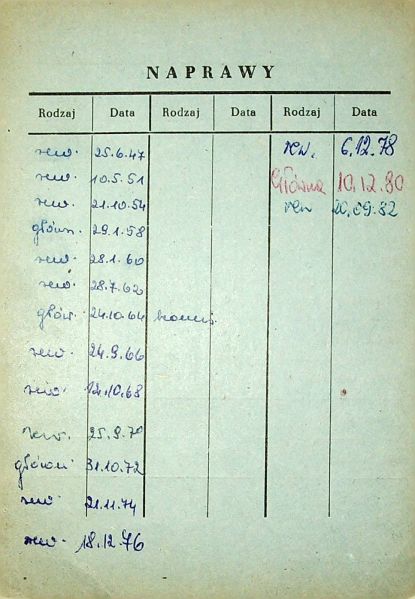 NAPRAWY
Rodzaj Data Rodzaj Data Rodzaj Data
rew. 25.6.47 rew. 6.12.78
rew. 10.5.51 Główna 10.12.80
rew. 21.10.54 rew 20.09.82
główn. 29.1.58
rew. 28.1.60
rew. 28.7.62
głów. 24.10.64
rew. 24.9.66
rew. 12.10.68
rew. 25.9.70
główn 31.10.72
rew. 21.11.74
rew. 18.12.76